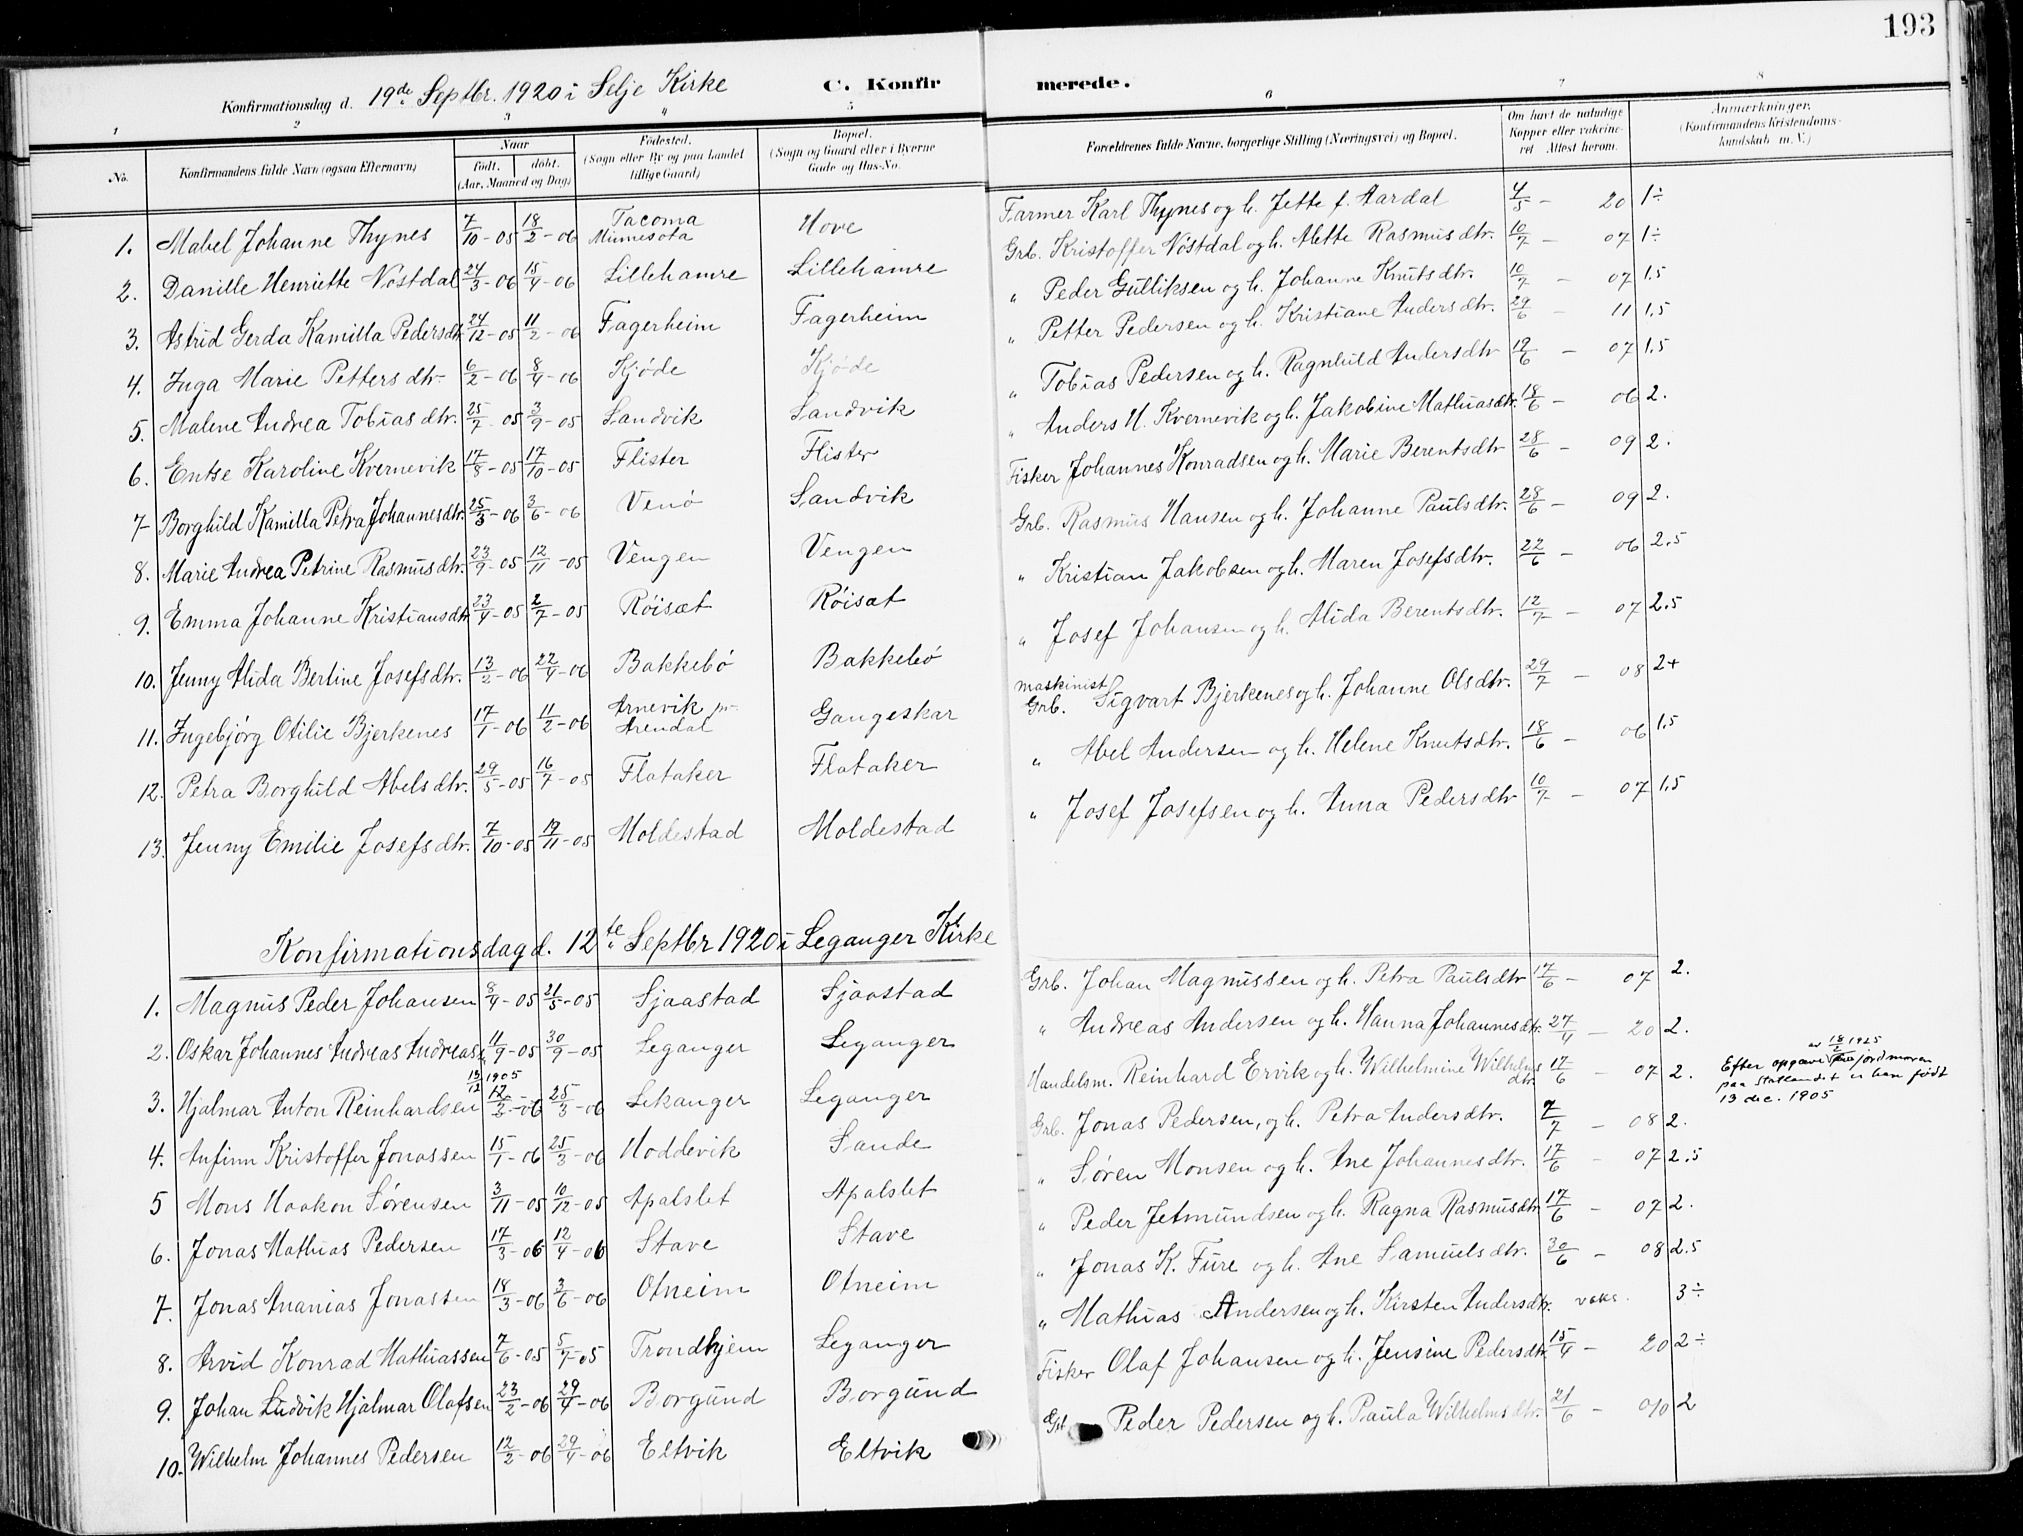 193
Konfirmationsdag d. 19de Septbr. 1920 i Selje Kirke C. Konfirmerede.
1 2 3 4 5 6 7 8
No. Konfirmandens fulde Navn (ogsaa Efternavn) Naar født. døbt. (Aar, Maaned og Dag) Fødested. (Sogn eller By og paa Landet tillige Gaard) Bopæl. (Sogn og Gaard eller i Byerne Gade og Hus-No. Forældrenes fulde Navne, borgerlige Stilling (Næringsvei) og Bopæl. Om havt de naturlige Kopper eller vakcineret Attest herom. Anmærkninger. (Konfirmandens Kristendomskundskab m. V.)
1. Mabel Johanne Thynes 7/10-05 18/2-06 Tacoma Minnesota Hove Farmer Karl Thynes og h. Jette f. Aardal 4/5 - 20 1÷
2. Danille Henriette Nöstdal 24/3-06 15/4-06 Lillehamre Lillehamre Grb. Kristoffer Nöstdal og h. Alette Rasmusdtr. 10/7 - 07 1÷
3. Astrid Gerda Kamilla Pedersdtr. 24/12-05 11/2-06 Fagerheim Fagerheim " Peder Gulliksen og h. Johanne Knutsdtr. 10/7 - 07 1.5
4. Inga Marie Pettersdtr. 6/2-06 8/4-06 Kjøde Kjøde " Petter Pedersen og h. Kristiane Andersdtr. 29/6 - 11 1.5
5. Malene Andrea Tobiasdtr. 25/7-05 3/9-05 Sandvik Sandvik " Tobias Pedersen og h. Ragnhild Andersdtr 19/6 - 07 1.5
6. Entse Karoline Kvernevik 17/8-05 17/10-05 Flister Flister " Anders M. Kvernevik og h. Jakobine Mathiasdtr. 18/6 - 06 2.
7 Borghild Kamilla Petra Johannesdtr. 25/3-06 3/6-06 Venö Sandvik Fisker Johannes Konradsen og h. Marie Berentsdtr 28/6 - 09 2.
8. Marie Andrea Petrine Rasmusdtr. 23/9-05 12/11-05 Vengen Vengen Grb. Rasmus Hansen og h. Johanne Paulsdtr. 28/6 - 09 2.
9. Emma Johanne Kristiansdtr 23/4-05 2/7-05 Röisæt Röisæt " Kristian Jakobsen og h. Maren Josefsdtr. 22/6 - 06 2.5
10. Jenny Alida Bertine Josefsdtr. 13/2-06 22/4-06 Bakkebö Bakkebö " Josef Johansen og h. Alida Berentsdtr. 12/7 - 07 2.5
11. Ingebjörg Otilie Bjerkenes 17/1-06 11/2-06 Arnevik pr. Arendal Gangeskar maskinist Grb. Sigvart Bjerkenes og h. Johanne Olsdtr. 29/7 - 08 2+
12. Petra Borghild Abelsdtr. 29/5-05 16/7-05 Flataker Flataker " Abel Andersen og h. Helene Knutsdtr. 18/6 - 06 1.5
13. Jenny Emilie Josefsdtr. 7/10-05 19/11-05 Moldestad Moldestad " Josef Josefsen og h. Anna Pedersdtr 10/7 - 07 1.5
Konfirmationsdag d. 12te Septbr 1920 i Leganger Kirke
1. Magnus Peder Johansen 8/4-05 21/5-05 Sjaastad Sjaastad Grb. Johan Magnussen og h. Petra Paulsdtr 17/6 - 07 2.
2. Oskar Johannes Andreas Andreas. 11/9-05 30/9-05 Leganger Leganger " Andreas Andersen og h. Hanna Johannesdtr. 27/4 - 20 2.
3. Hjalmar Anton Reinhardsen 13/12 1905 12/3-06 25/3-06 Lekanger Leganger Handelsm. Reinhard Ervik og h. Wilhelmine Wilhelmsdtr. 17/6 - 07 2. Efter opgave av 18/2 1925 fra jordmoren paa Statlandet er han født 13 dec. 1905
4. Anfinn Kristoffer Jonassen 15/1-06 25/3-06 Hoddevik Sande Grb. Jonas Pedersen, og h. Petra Andersdtr. 7/7 - 08 2.
5 Mons Haakon Sörensen 3/11-05 10/12-05 Apalslet Apalslet " Søren Monsen og h. Ane Johannesdtr. 17/6 - 07 2.5
6. Jonas Mathias Pedersen 17/3-06 12/4-06 Stave Stave " Peder Jetmundsen og h. Ragna Rasmusdtr 17/6 - 07 2.
7. Jonas Ananias Jonassen 18/3-06 3/6-06 Otneim Otneim " Jonas K. Fure og h. Ane Samuelsdtr. 30/6 - 08 2.5
8. Arvid Konrad Mathiassen 7/6-05 5/7-05 Trondhjem Leganger " Mathias Andersen og h. Kirsten Andersdtr. vakc. 3÷
9. Johan Ludvik Hjalmar Olafsen 23/2-06 29/4-06 Borgund Borgund Fisker Olaf Johansen og h. Jensine Pedersdtr 15/4 - 20 2÷
10. Wilhelm Johannes Pedersen 12/2-06 29/4-06 Eltvik Eltvik Peder Pedersen og h. Paula Wilhelmsdtr. 21/6 - 2